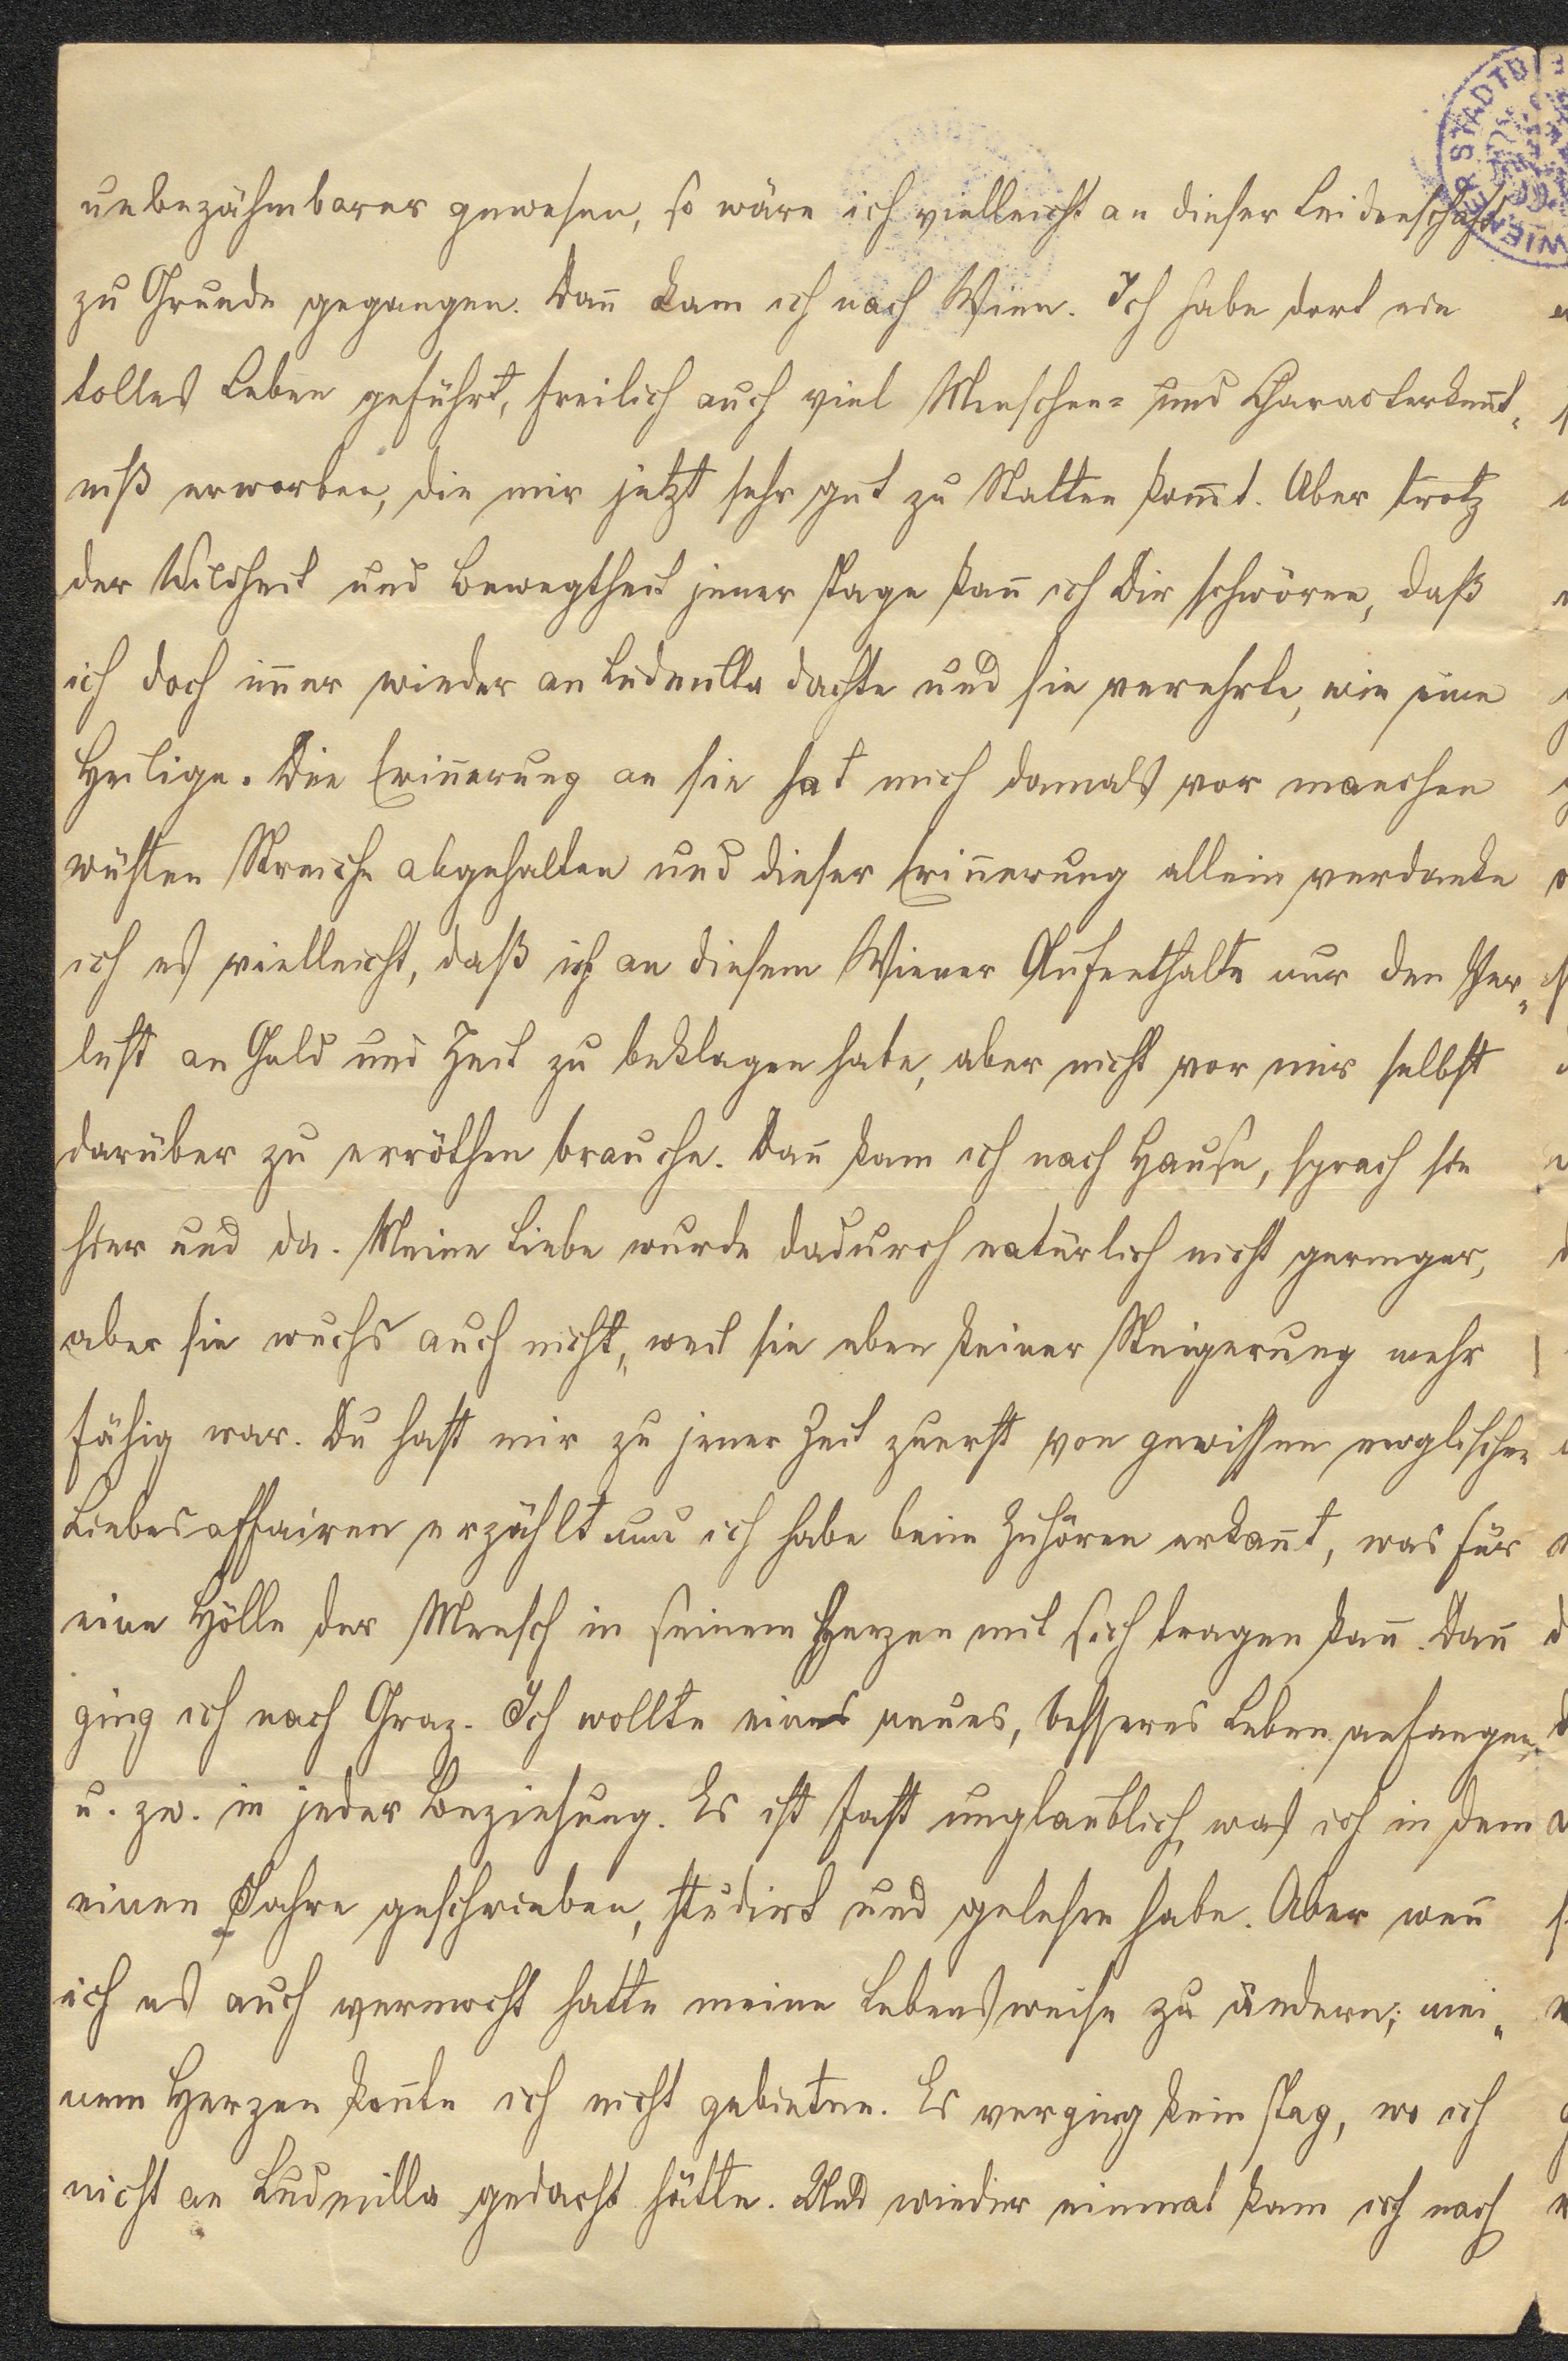 unbezähmbarer gewesen, so wäre ich vielleicht an dieser Leidenschaft
zu Grunde gegangen. Dan̄ kam ich nach Wien. Ich habe dort ein
tolles Leben geführt, freilich auch viel Menschen= und Charakterken̄t„
niß erworben, die mir jetzt sehr gut zu Statten kom̄t. Aber trotz
der Wildheit und Bewegtheit jener Tage kan̄ ich Dir schwören, daß
ich doch im̄er wieder an Ludmilla dachte und sie verehrte, wie eine
Heilige. Die Erin̄erung an sie hat mich damals vor manchen
wüsten Streiche abgehalten und dieser Erin̄erung allein verdanke
ich es vielleicht, daß ich an diesem Wiener Aufenthalte nur den Ver„
lust an Geld und Zeit zu beklagen habe, aber nicht vor mir selbst
darüber zu erröthen brauche. Dan̄ kam ich nach Hause, sprach sie
hier und da. Meine Liebe wurde dadurch natürlich nicht geringer,
aber sie wuchs auch nicht, weil sie eben keiner Steigerung mehr
fähig war. Du hast mir zu jener Zeit zuerst von gewissen
Liebesaffairen erzählt und ich habe beim Zuhören erkan̄t, was für
eine Hölle der Mensch in seinem Herzen mit sich tragen kan̄. Dan̄
ging ich nach Graz. Ich wollte ein neues, besseres Leben anfangen,
u. zw. in jeder Beziehung. Es ist fast unglaublich, was ich in dem
einen Jahre geschrieben, studirt und gelesen habe. Aber wen̄
ich es auch vermocht hatte meine Lebensweise zu ändern; mei„
nem Herzen kon̄te ich nicht gebieten. Es verging kein Tag, wo ich
nicht an Ludmilla gedacht hätte. Und wieder einmal kam ich nach